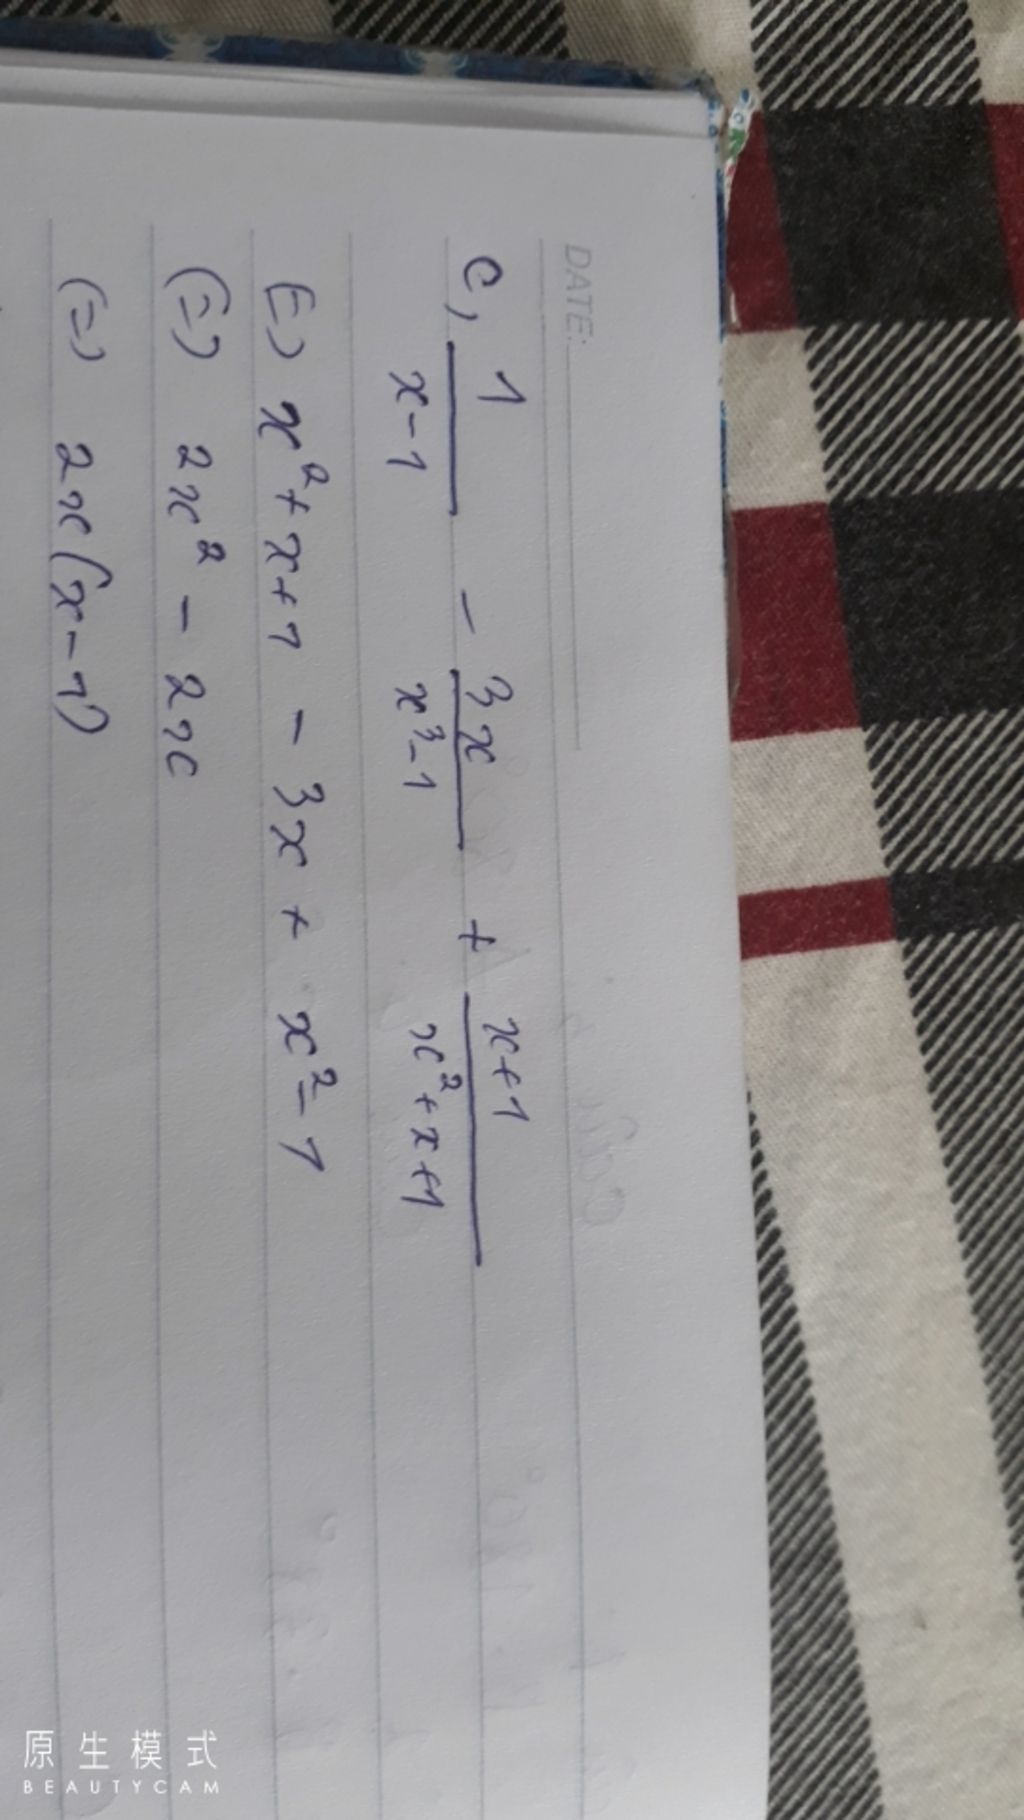 DATE:
c, 1/(x-1) - 3x/(x³-1) + (x+1)/(x²+x+1)
(=) x²+x+1 - 3x + x²-1
(=) 2x² - 2x
(=) 2x(x-1)
原生模式
BEAUTYCAM